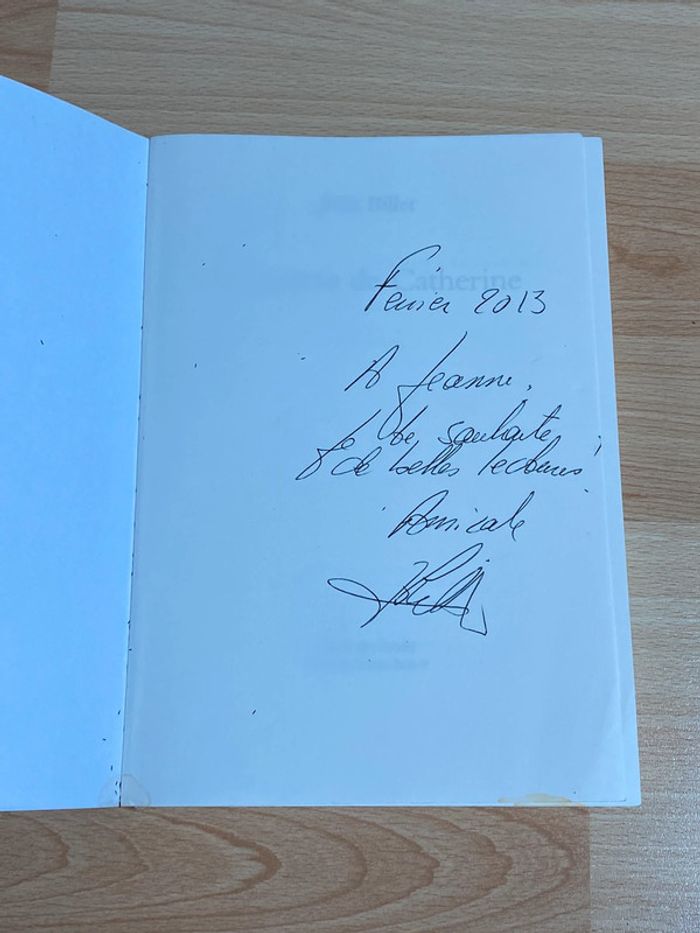 Billet
de Catherine
Fevrier 2013
A Jeanne,
Je te souhaite
de belles lectures !
Amicale